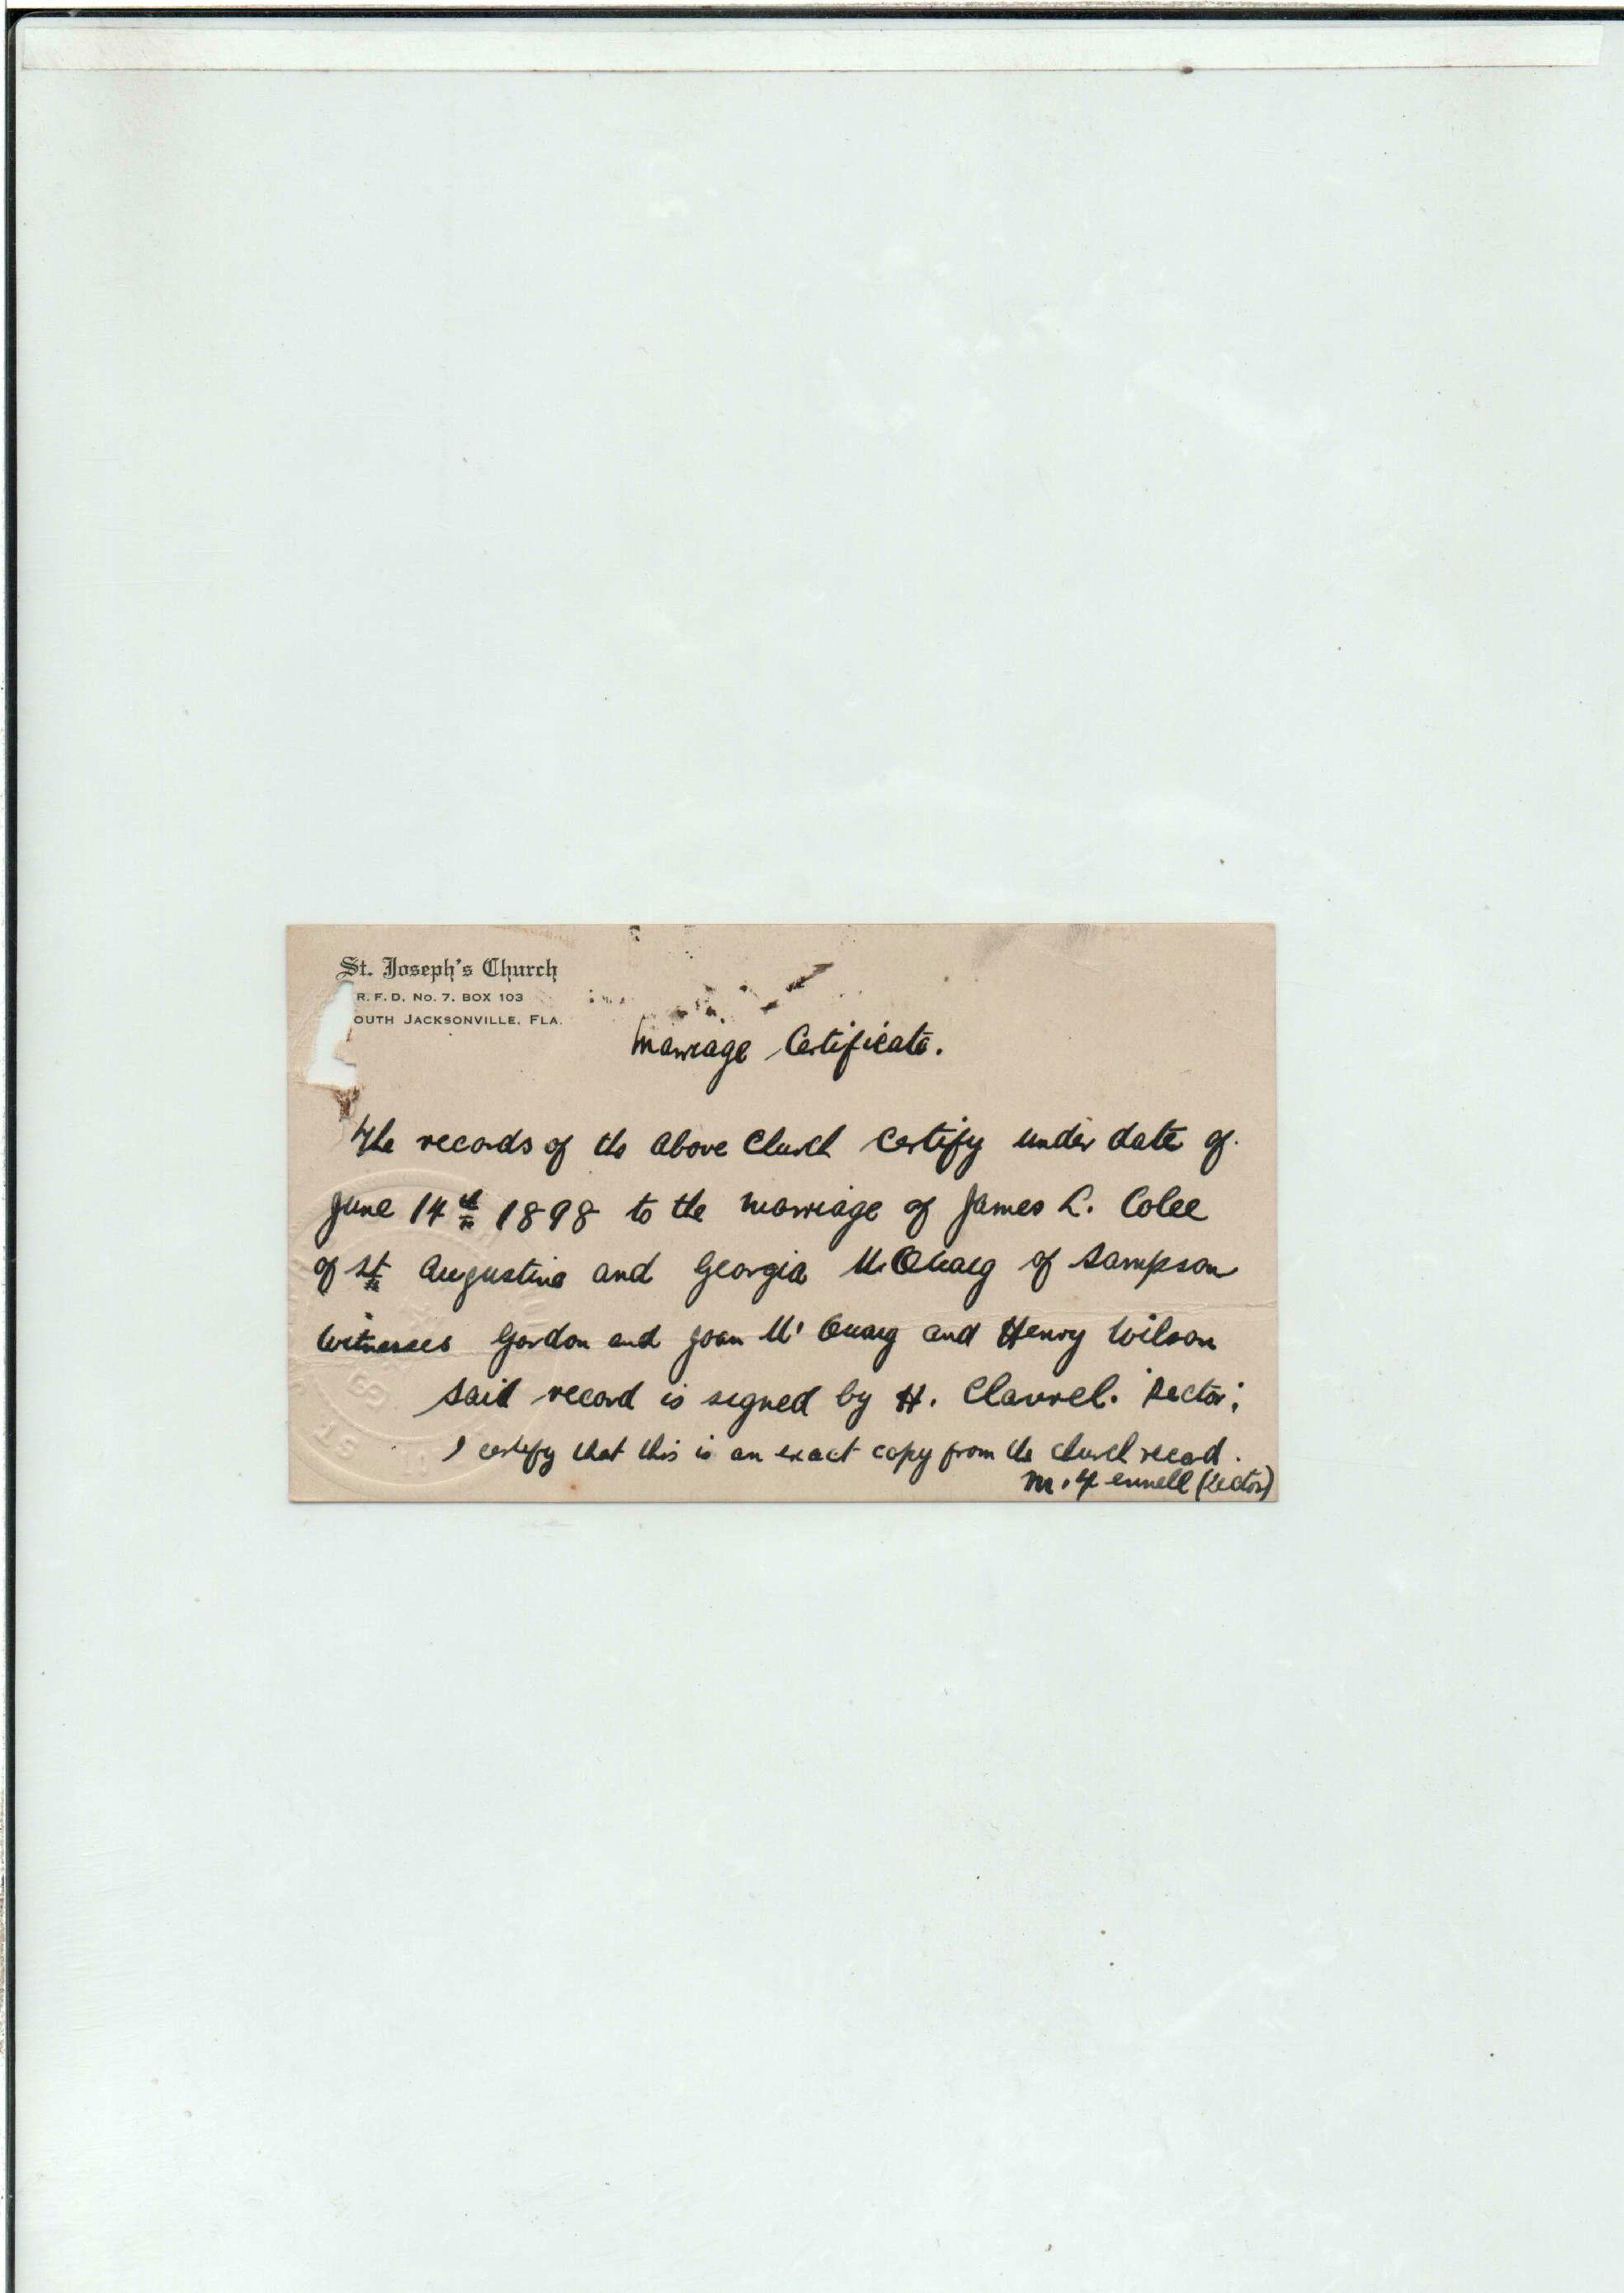 St. Joseph's Church
R. F. D. No. 7. BOX 103
OUTH JACKSONVILLE, FLA.
Marriage Certificate.
The records of the above Church certify under date of
June 14th 1898 to the marriage of James L. Colee
of St Augustine and Georgia McQuaig of Sampson
Witnesses Gordon and Joan McQuaig and Henry Wilson
Said record is signed by H. Clavrel. Rector.
I certify that this is an exact copy from the church record.
M. (Rector)